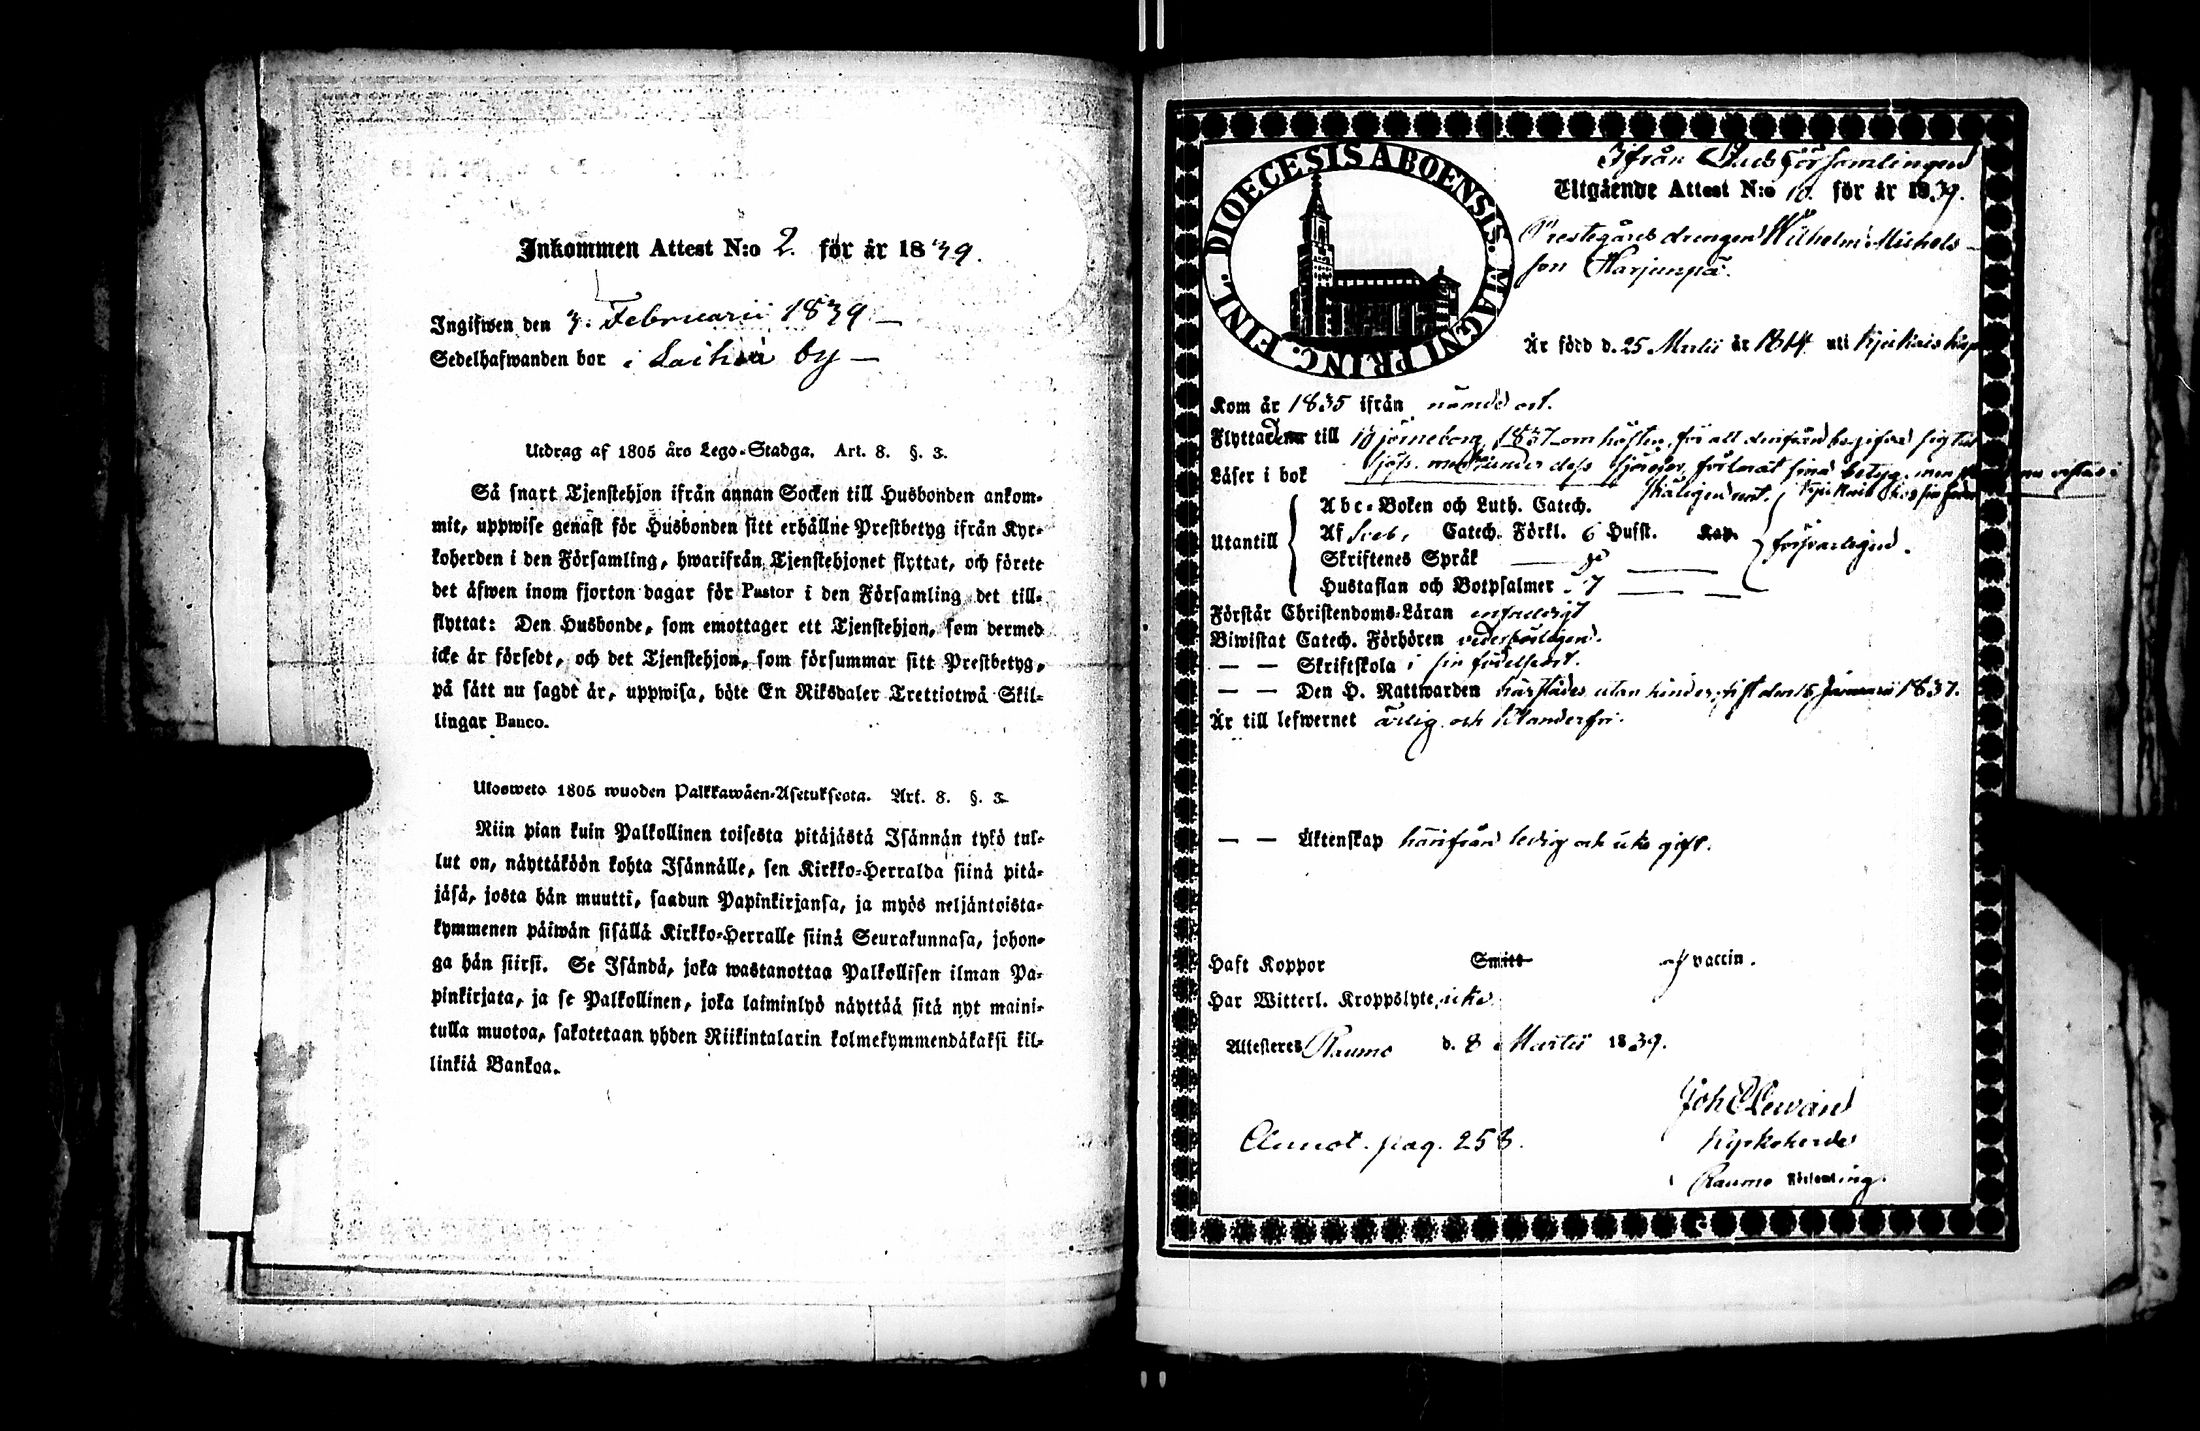 Inkommen Attest N:o 2. för år 1839.
Ingifwen den 3. Februarii 1839 —
Sedelhafwanden bor i Laihia by —
Utdrag af 1805 års Lego-Stadga. Art. 8. §. 3.
Så snart Tjenstehjon ifrån annan Socken till Husbonden ankom-
mit, uppwise genast för Husbonden sitt erhållne Prestbetyg ifrån Kyr-
koherden i den Församling, hwarifrån Tjenstehjonet flyttat, och förete
det äfwen inom fjorton dagar för Pastor i den Församling det till-
flyttat: Den Husbonde, som emottager ett Tjenstehjon, som dermed
icke är försedt, och det Tjenstehjon, som försummar sitt Prestbetyg,
på sätt nu sagdt är, uppwisa, böte En Riksdaler Trettiotwå Skil-
lingar Banco.
Ulosweto 1805 wuoden Palkkawäen-Asetuksesta. Art. 8. §. 3.
Niin pian kuin Palkollinen toisesta pitäjästä Isännän tykö tul-
lut on, näyttäköön kohta Isännälle, sen Kirkko-Herralda siinä pitä-
jäsä, josta hän muutti, saadun Papinkirjansa, ja myös neljäntoista-
kymmenen päiwän sisällä Kirkko-Herralle siinä Seurakunnasa, johon-
ga hän siirsi. Se Isändä, joka wastanottaa Palkollisen ilman Pa-
pinkirjata, ja se Palkollinen, joka laiminlyö näyttää sitä nyt maini-
tulla muotoa, sakotetaan yhden Riikintalarin kolmekymmendäkaksi kil-
linkiä Bankoa.
DIOECESIS ABOENSIS. MAGNI PRINC. FINL.
Ifrån Församlingen
Utgående Attest N:o 10. för år 1839.
Prestegårds drengen Wilhelm Michels-
son Harjunpä.
Är född d. 25 Martii år 1814 uti
Kom år 1835 ifrån nämnd ort.
Flyttade till Björneborg 1837 om hösten, för att derifrån begifva sig till
Läser i bok
Utantill
Abc-Boken och Luth. Catech.
Af Catech. Förkl. 6 Hufst. Kap.
försvarligen.
Skriftenes Språk
Hustaflan och Botpsalmer
Förstår Christendoms-Läran
Biwistat Catech. Förhören vederbörligen.
— — Skriftskola i sin födelseort.
— — Den H. Nattwarden härstädes utan hinder, sist den 15 Januarii 1837.
Är till lefwernet ärlig och klanderfri.
— — Äktenskap härifrån ledig och icke gift.
Haft Koppor Smitt af vaccin.
Har Witterl. Kroppslyte icke.
Attesteres Raumo d. 8 Martii 1839.
Joh
Kyrkoherde
Annot. pag. 258.
i Raumo Församling.